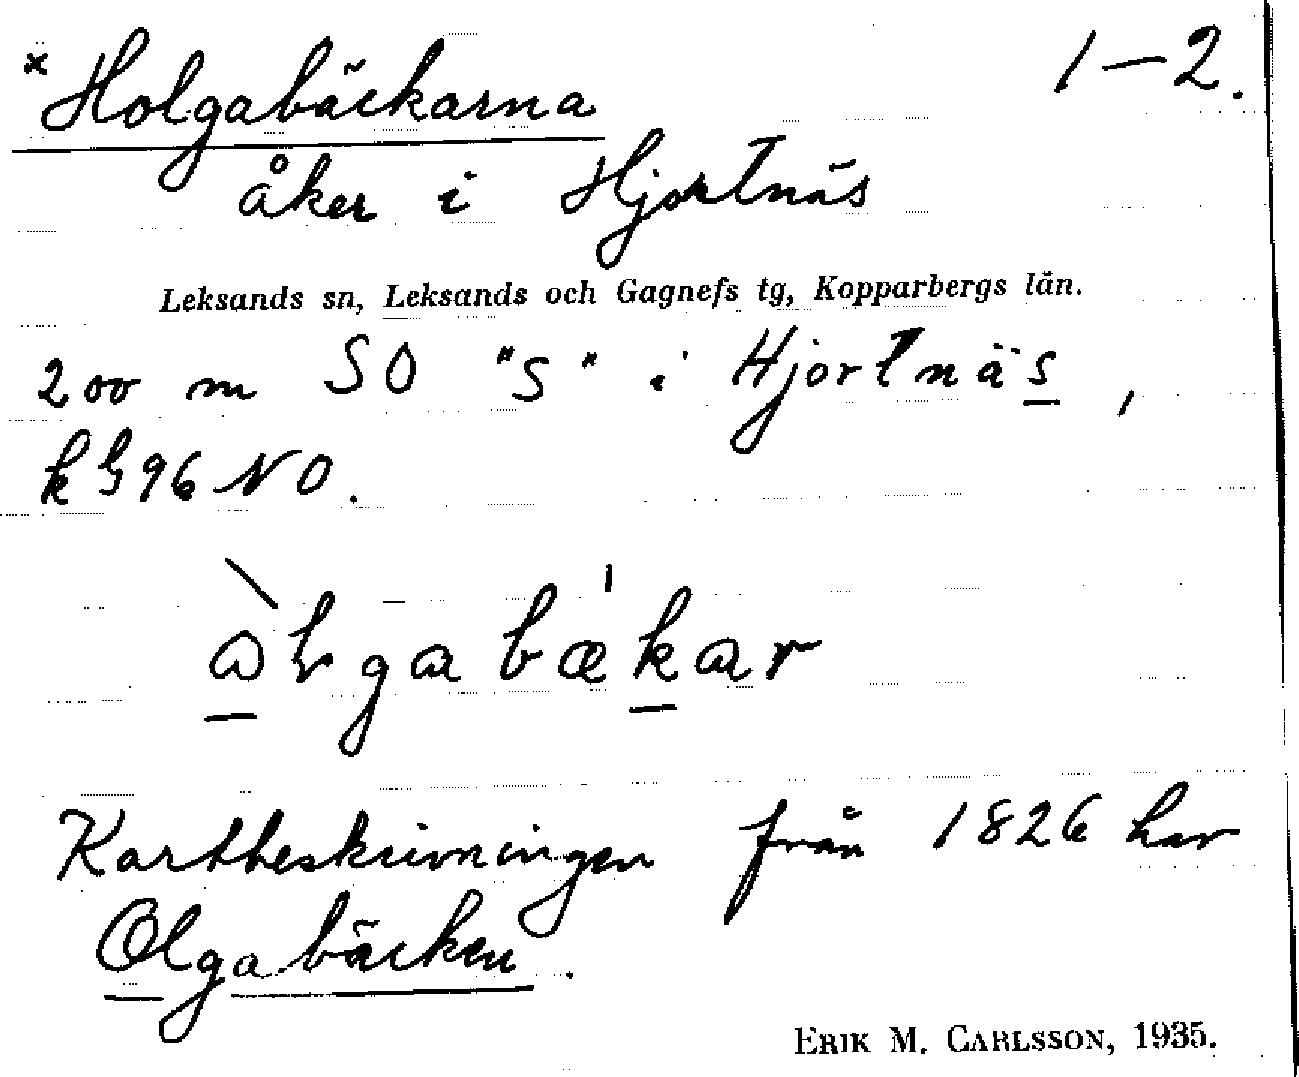 × Holgabäckarna 1–2.
åker i Hjortnäs
Leksands sn, Leksands och Gagnefs tg, Kopparbergs län.
200 m SO "S" i Hjortnäs,
k G 96 NO.
Kartbeskrivningen från 1826 har
Olgabäcken.
ERIK M. CARLSSON, 1935.